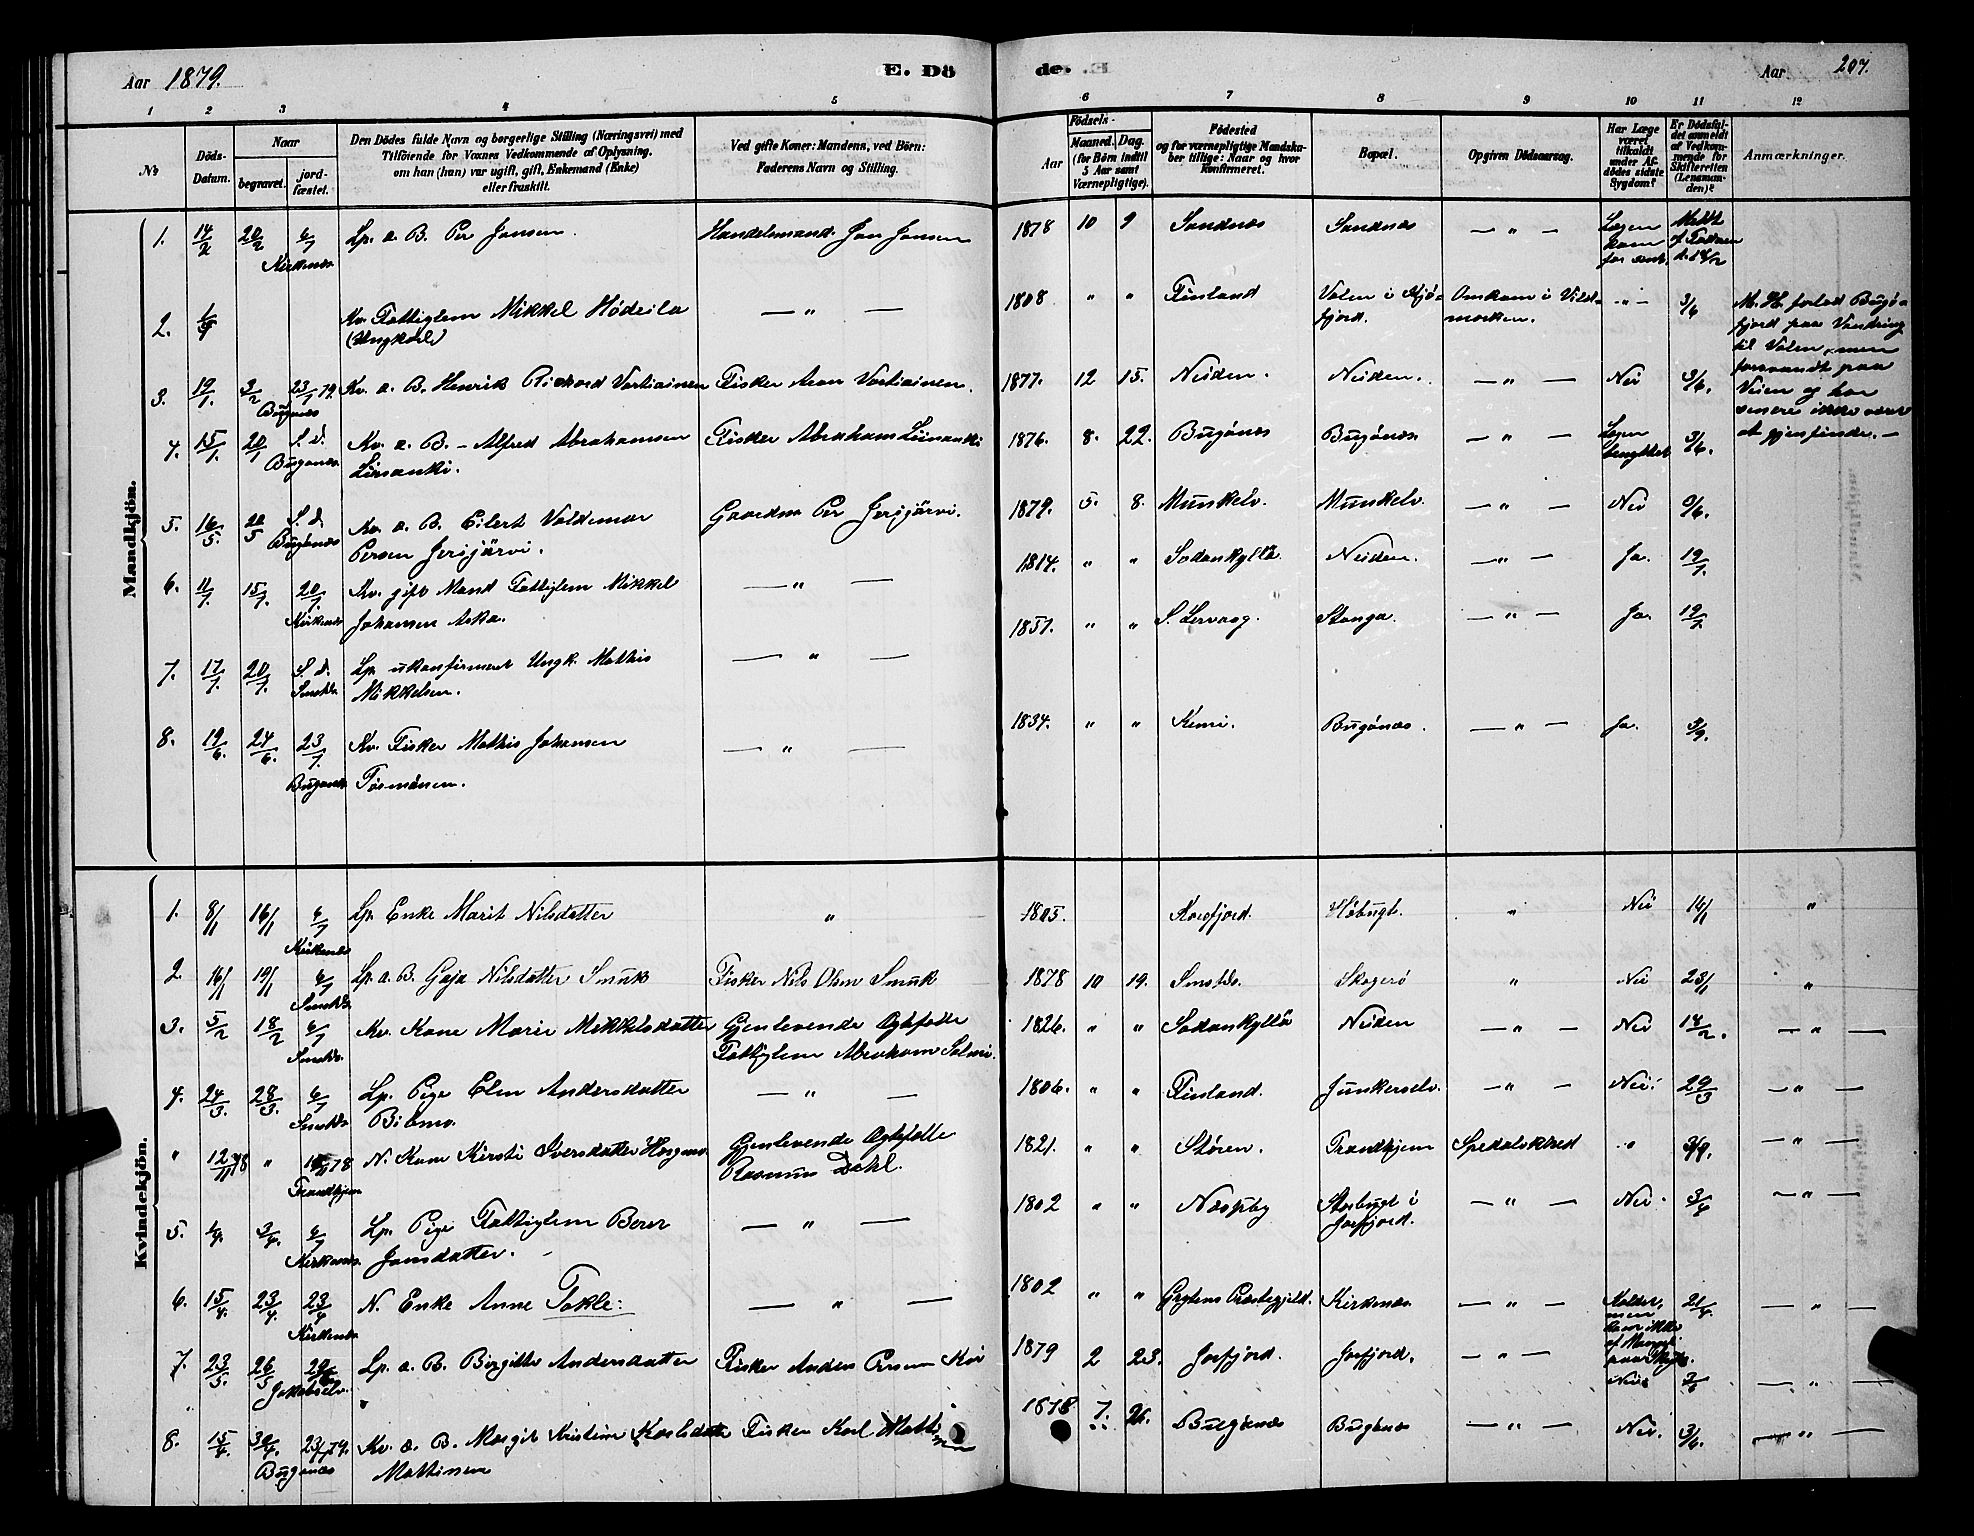 Aar 1879. E. Dö
de. Aar 207.
1 2 3 4 5
6 7 8 9 10 11 12
No Döds-Datum. Naar begravet. jord-fæstet. Den Dödes fulde Navn og borgerlige Stilling (Næringsvei) med Tilföiende for Voxnes Vedkommende af Oplysning, om han (hun) var ugift, gift, Enkemand (Enke) eller fraskilt. Ved gifte Koner: Mandens, ved Börn: Faderens Navn og Stilling.
Aar Födsels- Maaned. Dag. (for Börn indtil 5 Aar samt Værnepligtige). Födested og for værnepligtige Mandskaber tillige: Naar og hvor konfirmeret. Bopæl. Opgiven Dödsaarsag. Har Læge været tilkaldt under Afdödes sidste Sygdom? Er Dödsfaldet anmeldt af Vedkommende for Skifteretten (Lensmanden)? Anmærkninger.
Mandkjön.
1. 14/2 20/2 6/7 Kirkenæs Lp. a. B. Per Jonsen. Handelsmand Jon Jonsen 1878 10 9 Sandnæs Sandnæs — " — Lægen kom for sent. Meldt af Faderen d. 18/2
2. Kv. Fattiglem Mikkel Hödeila (Ungkarl) — " — 1808 " " Finland Valen i Kjöfjord. Omkom i Vildmarken. — " — 3/6 M. H. forlod Bugöfjord paa Vandring til Valen, men forsvandt paa Veien og har senere ikke været at gjenfinde. —
3. 19/1. 3/2 23/7 79. Bugönæs Kv. a. B. Henrik Rickard Vartiainen Fisker Aron Vartiainen. 1877. 12 15. Neiden. Neiden. — " — Nei 3/6.
4. 15/1. 20/1 S. d. Bugönæs. Kv. a. B. – Alfred Abrahamsen Liinanki. Fisker Abraham Liinanki 1876. 8. 22. Bugönæs Bugönæs. — " — Læge benyttet 3/6.
5. 16/5. 20/5 S. d. Bugönæs Kv. a. B. Eilert Valdemar Persen Jerijärvi. Gaardm. Per Jerijärvi. 1879. 5. 8. Munkelv. Munkelv. — " — Nei 9/6.
6. 11/7. 15/7. 20/7. Kirkenæs Kv. gift Mand Fattiglem Mikkel Johansen Aska. — " — 1814. " " Sodankylla Neiden. — " — Ja. 19/7.
7. 17/7. 20/7. S. d. Lp. ukonfirmeret Ungk. Mathis Mikkelsen. — " — 1851. " " Stonga. — " — Ja. 19/7.
8. 19/6. 24/6. 23/7. Bugönæs Kv. Fisker Mathis Johansen — " — 1834. " " Kemi. Bugönæs. — " — Ja. 3/9.
Kvindekjön.
1. 8/1 16/1 6/7 Kirkenæs Lp. Enke Marit Nilsdatter " 1805. Korsfjord. Höbugt. " Nei 14/1 "
2. 16/1 19/1 6/7 Lp. a. B. Gaja Nilsdatter Smuk Fisker Nils Olsen Smuk 1878 10 19. Skogerö " Nei 23/1 "
3. 5/2 18/2 6/7 Kv. Kone Marie Mikkelsdatter Gjenlevende Ægtefælle Fattiglem Abraham Salmi. 1826. " " Sodankyllä Neiden — " — Nei 14/2. — " —
4. 24/3. 28/3. 6/7 Lp. Pige Elen Andersdatter — " — 1806. " " Finland. Junkerselv. — " — Nei. 29/3 — " —
" 12/11 78 " 78 Trondhjem N. Kone Kirsti Iversdatter Gjenlevende Ægtefælle Rasmus Dahl. 1821. " " Stören. Trondhjem Spedalskhed " — " —
5. 3/4. 6/7 Kirkenæs. Lp. Pige Fattiglem Berit Jonsdatter. — " — 1802 " " Næsseby Storbugt i Jarfjord. — " — Nei. 3/4 — " —
6. 15/4. 23/4 23/4 Kirkenæs. N. Enke Anne Tokle. — " — 1802 " " Grytens Præstegjeld. Kirkenæs — " — Kaldet, men kom ikke af Mangel paa Skyds. 21/4. — " —
7. 23/5. 26/5 Jakobselv. Lp. a. B. Birgitte Andersdatter Fisker Anders Persen 1879 2 23. Jarfjord. Jarfjord. — " — Nei — " —
8. 15/4. 30/4. 23/7 79. Bugönæs Kv. a. B. Margit Kristine Karlsdatter Mattinen Fisker Karl Mattinen 1878 7. 26. Bugönæs Bugönæs — " — Nei. 3/6. — " —